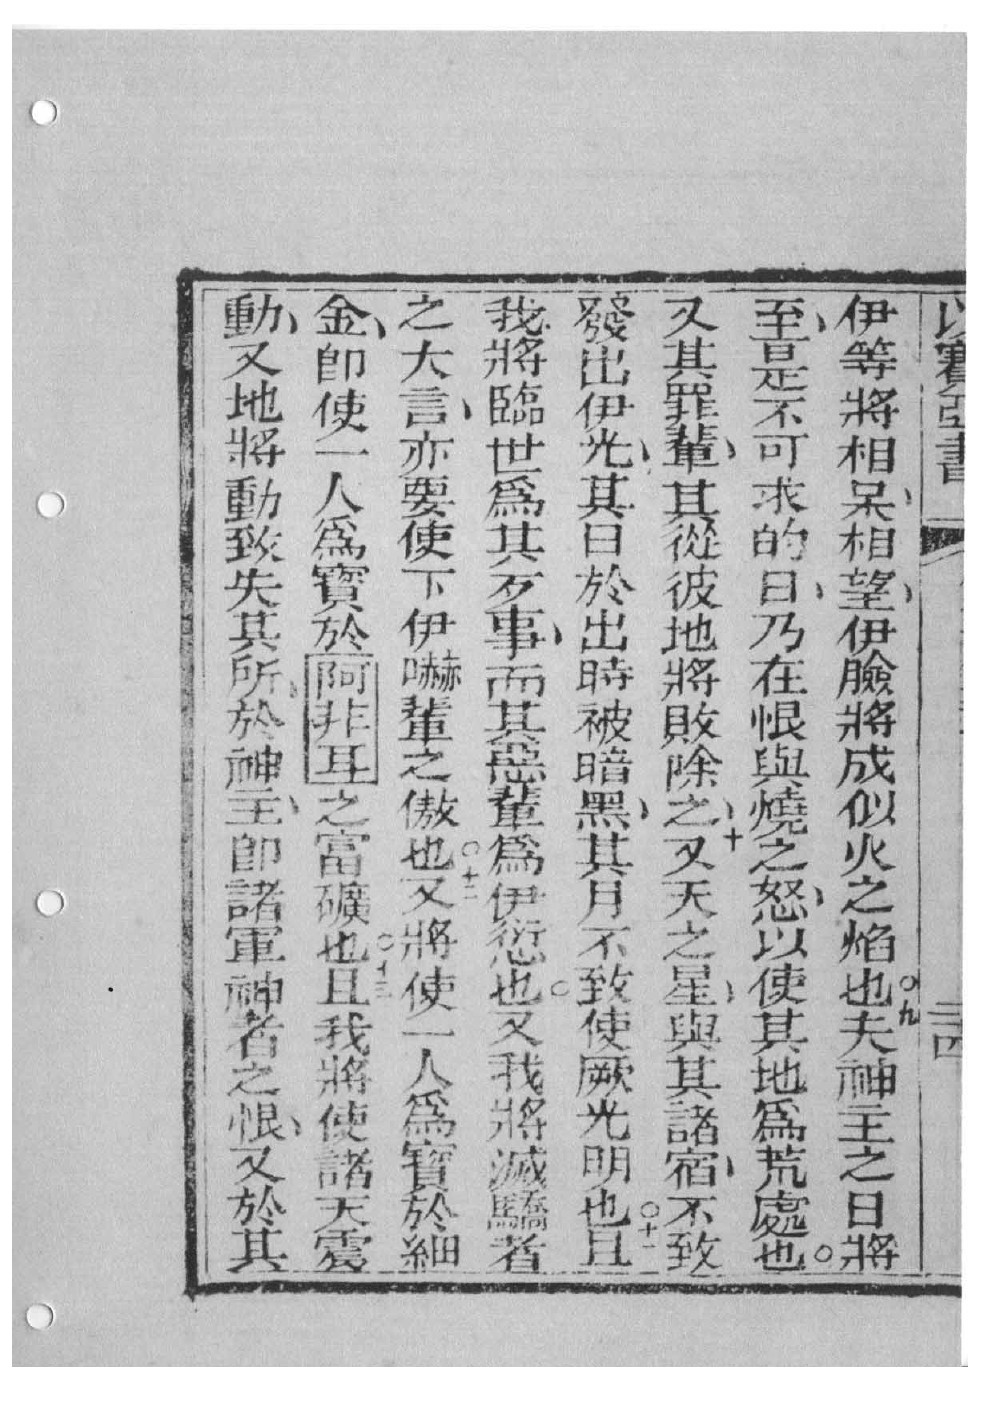 以賽亞書
二四
伊等將相呆、相望、伊臉將成似火之焰也○九夫神主之日將
至、是不可求的日、乃在恨與燒之怒、以使其地爲荒處也○
又其罪輩、其從彼地將敗除之、十又天之星、與其諸宿、不致
發出伊光、其日於出時被暗黑、其月不致使厥光明也○十一且
我將臨世爲其歹事、而其惡輩爲伊愆也○又我將滅驕者
之大言、亦要使下伊嚇輩之傲也○十二又將使一人爲寶於細
金、卽使一人爲寶於阿非耳之富礦也○十三且我將使諸天震
動、又地將動致失其所、於神主、卽諸軍神者之恨、又於其